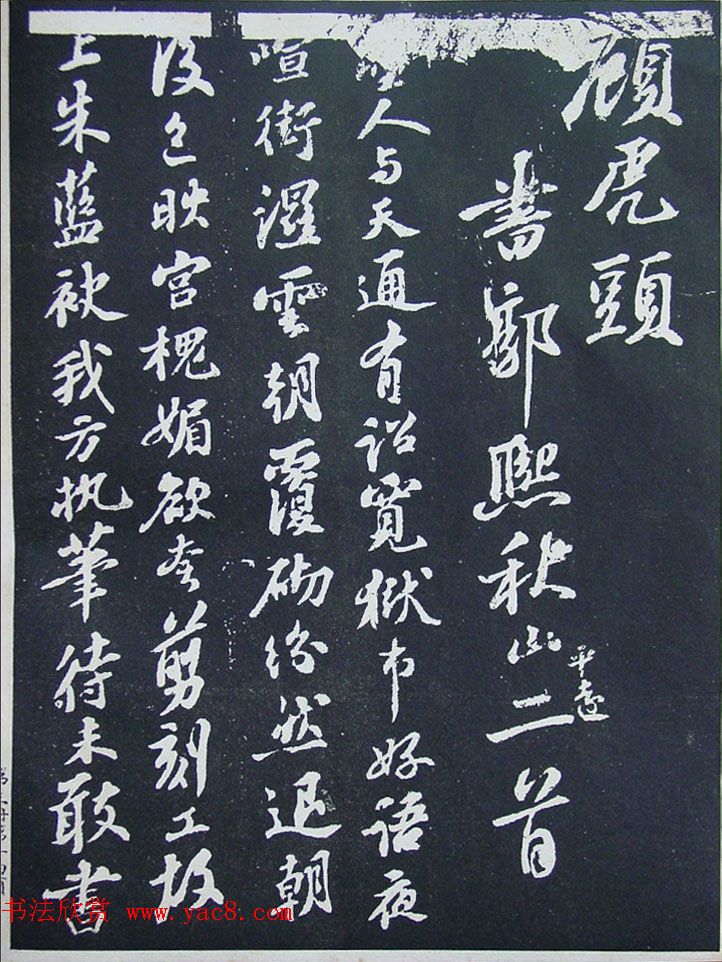 顧虎頭
書郭熙秋山平遠二首
聖人与天通有詔寬獄市好語夜
喧街濕雲朝覆砌紛然退朝
後色映宮槐媚欲夸剪刻工故
上朱藍袂我方执筆待未敢書
书法欣赏 www.yac8.com